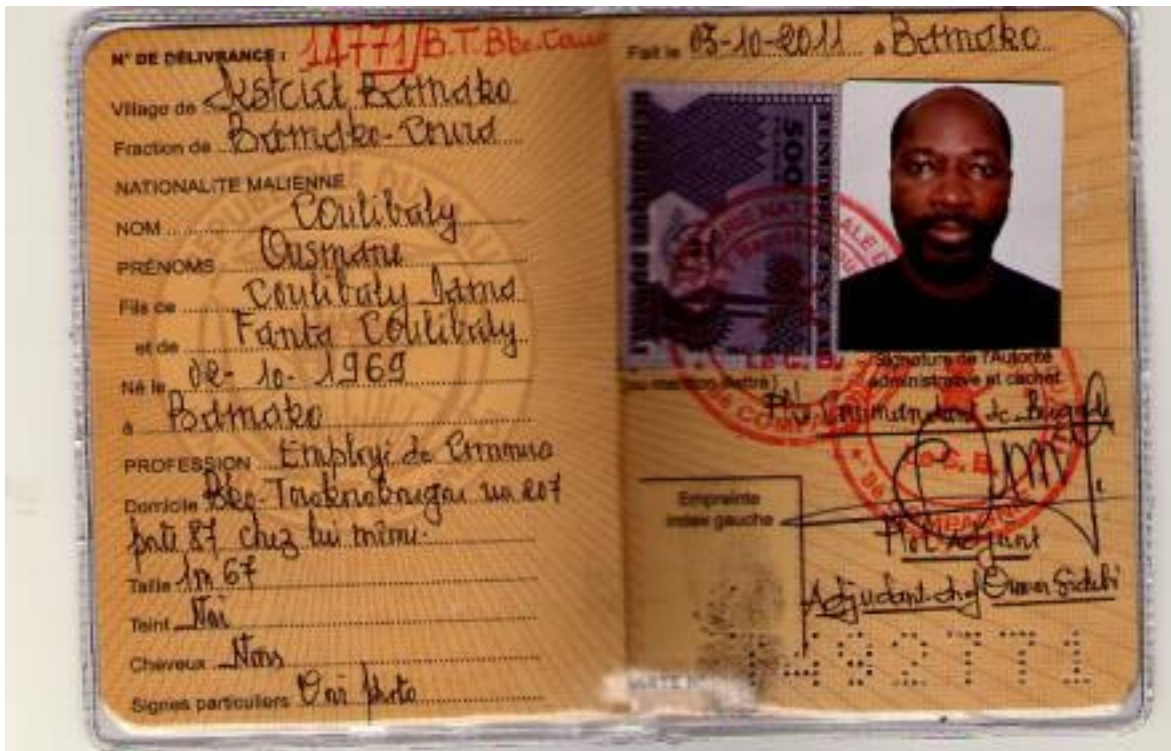 N° DE DÉLIVRANCE : 14771/B.T. Bko-Coura
Village de District Bamako
Fraction de Bamako-Coura
NATIONALITE MALIENNE
NOM Coulibaly
PRÉNOMS Ousmane
Fils de Coulibaly
et de Fanta Coulibaly
Né le 02-10-1969
à Bamako
PROFESSION Employé de Commerce
Domicile Bko- rue 207
porte 87 chez lui même.
Taille 1m 67
Teint Noir
Cheveux Noirs
Signes particuliers Voir photo
Fait le 03-10-2011 à Bamako
500
REPUBLIQUE DU MALI
Le C. B.
Signature de l'Autorité
administrative et cachet
P/Le Commandant de Brigade
Le C. B.
Empreinte
index gauche
P/o L'Adjoint
Adjudant-chef Oumar Sidibé